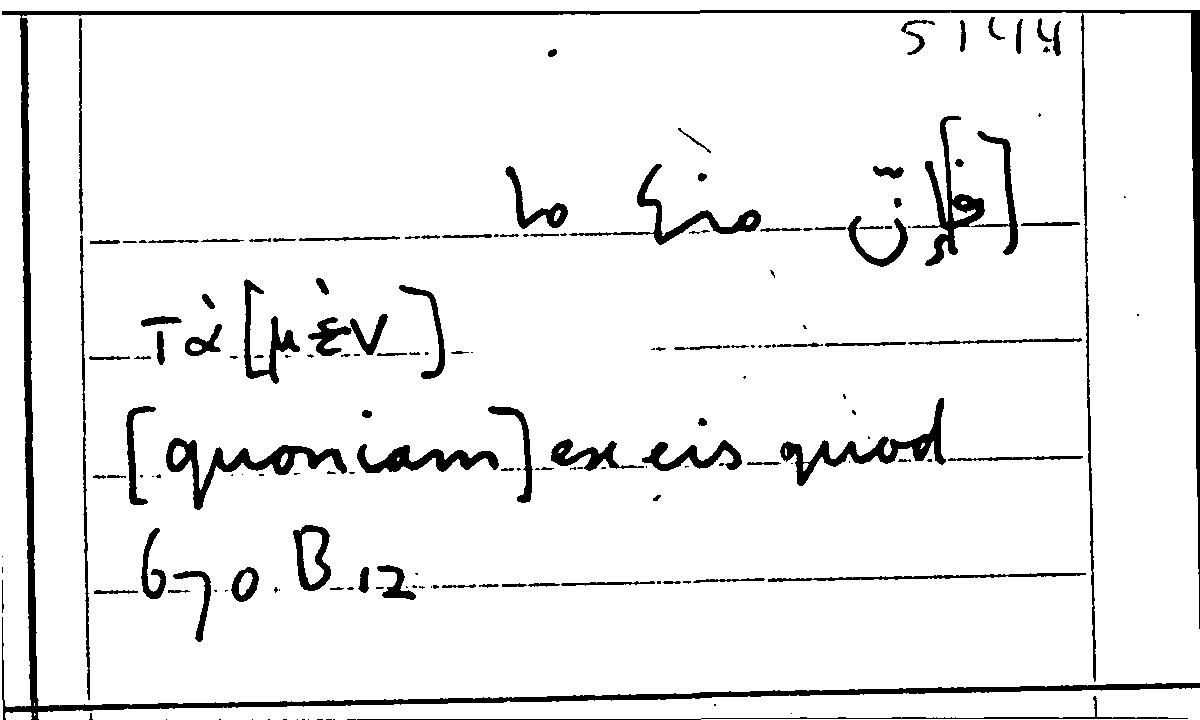 5144
[ف]إنّ منها ما
τὰ [μὲν]
[quoniam] ex eis quod
670.B12